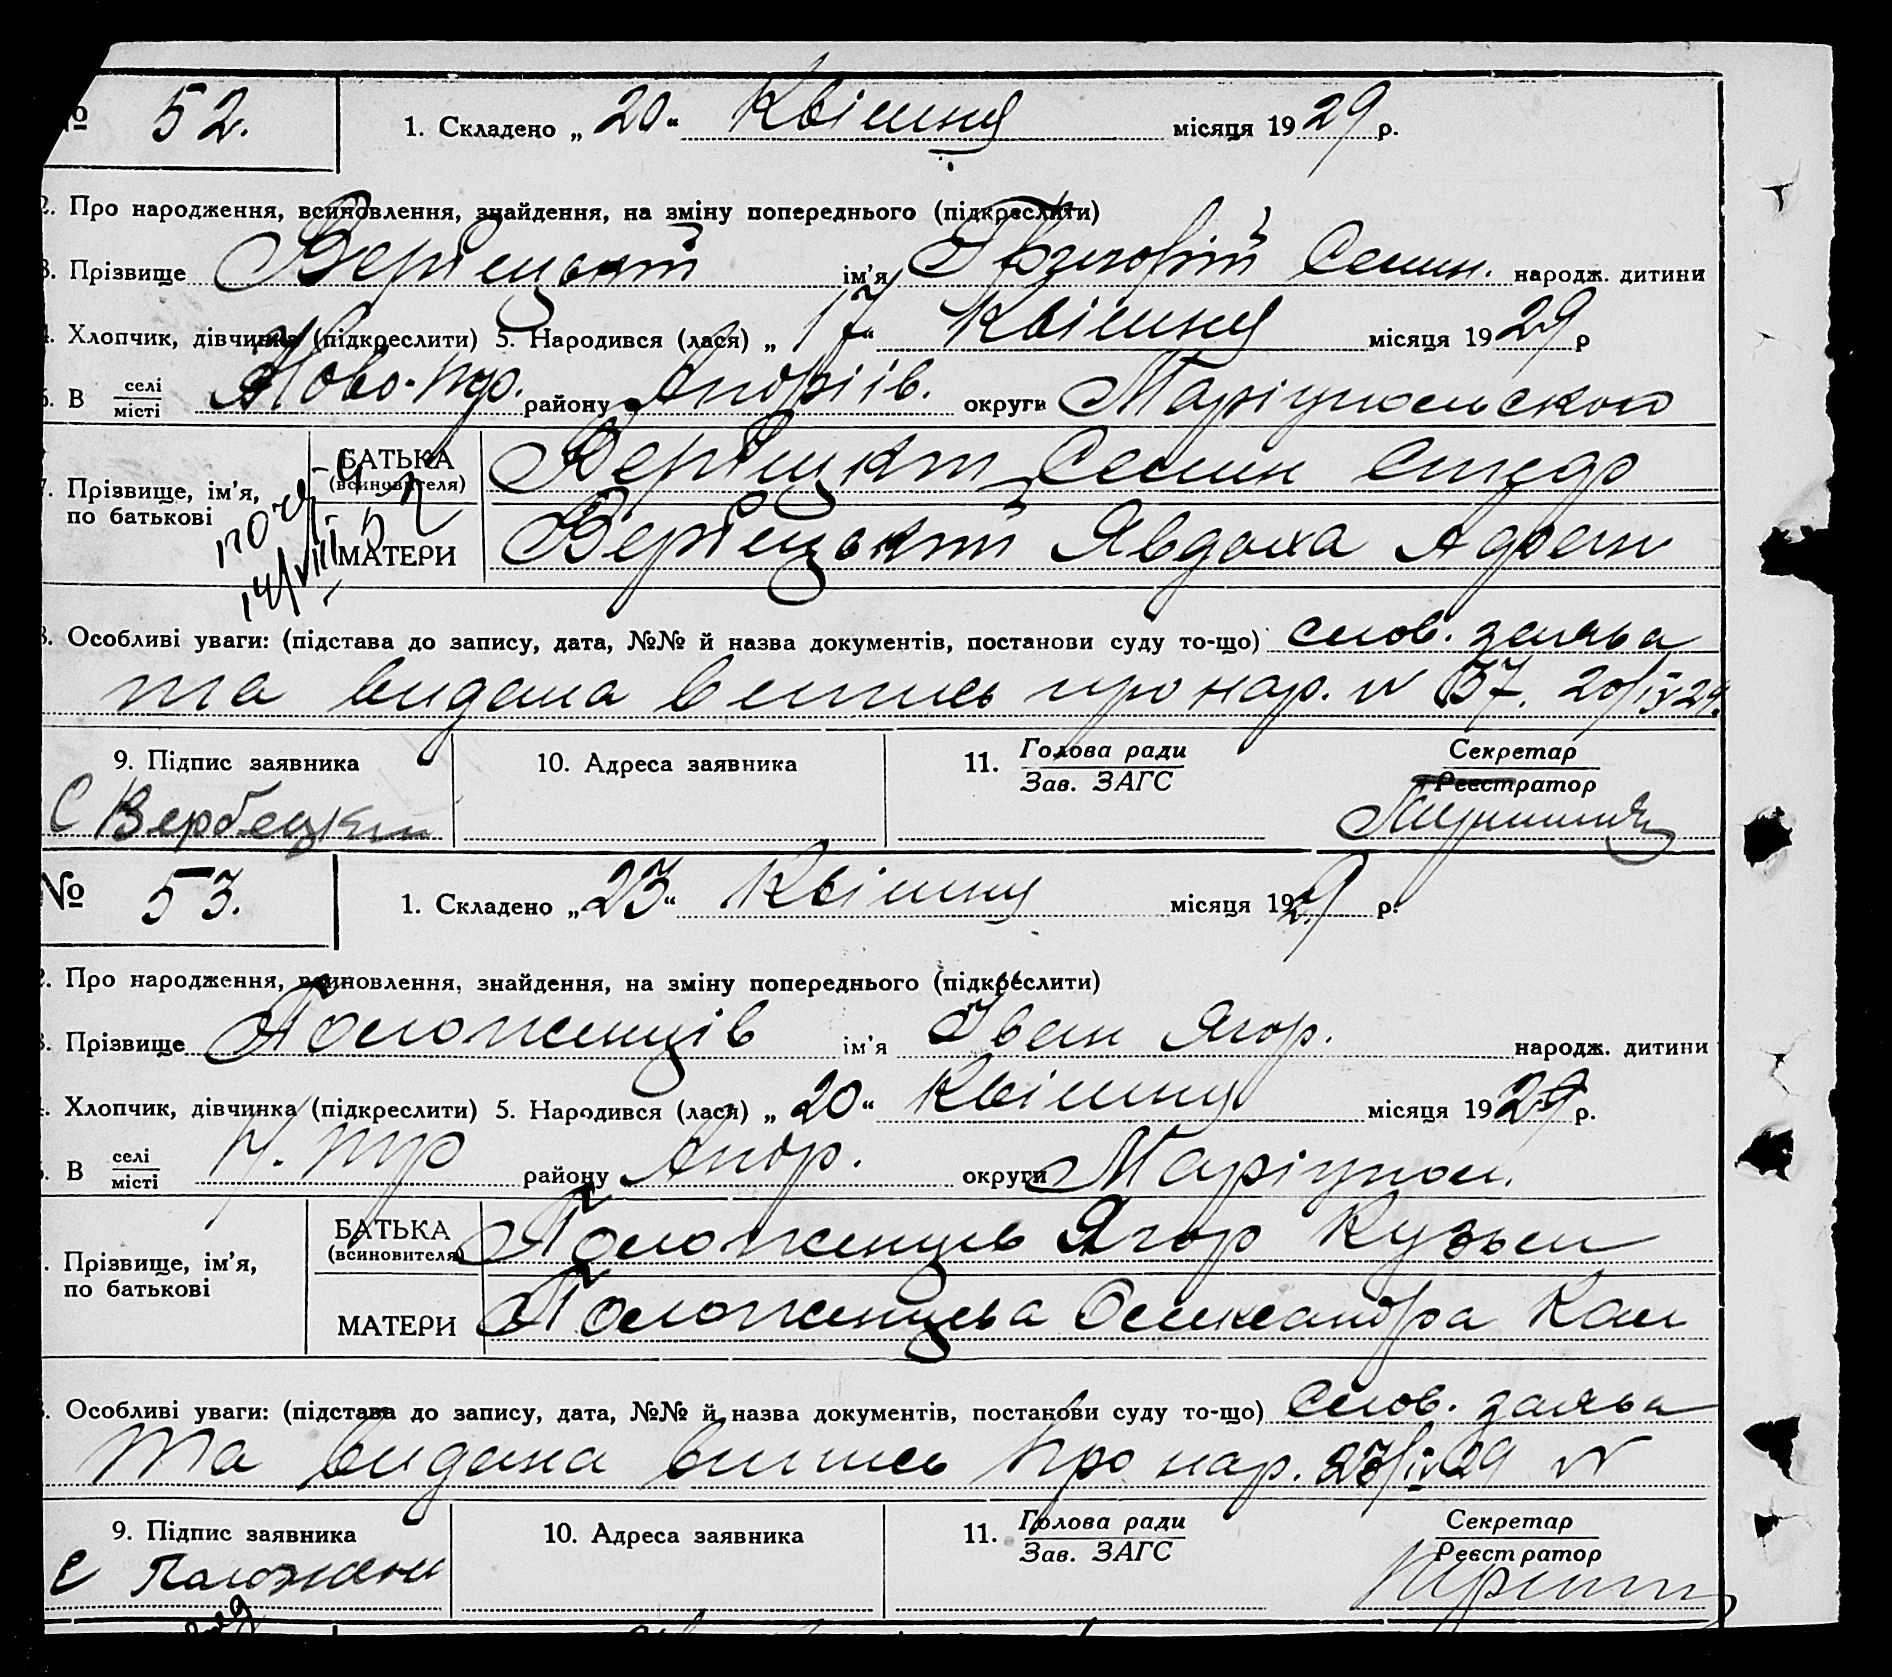 № 52.
1. Складено „ 20 " Квітня місяця 1929 р.
2. Про народження, всиновлення, знайдення, на зміну попереднього (підкреслити)
3. Прізвище Вербецький ім'я Семен. народж. дитини
4. Хлопчик, дівчинка (підкреслити) 5. Народився (лася) „ 17 " Квітня місяця 1929 р
6. В селі місті Ново-пд. району Андріів. округи Маріупольскої
7. Прізвище, ім'я, по батькові
БАТЬКА (всиновителя) Вербецкий Семен
МАТЕРИ Вербецький Явдоха
14/VIII
8. Особливі уваги: (підстава до запису, дата, №№ й назва документів, постанови суду то-що) слов. заява
та видана випись про нар. № 57. 20/IV 29.
9. Підпис заявника
10. Адреса заявника
11. Голова ради Зав. ЗАГС
Секретар Реєстратор
С Вербецкий
№ 53.
1. Складено „ 23 " Квітня місяця 1929 р.
2. Про народження, всиновлення, знайдення, на зміну попереднього (підкреслити)
3. Прізвище Положенців ім'я Іван Ягор. народж. дитини
4. Хлопчик, дівчинка (підкреслити) 5. Народився (лася) „ 20 " Квітня місяця 1929 р.
6. В селі місті району Андр. округи Маріупол.
7. Прізвище, ім'я, по батькові
БАТЬКА (всиновителя) Положенцев Ягор Кузьм
МАТЕРИ Положенцева Олександра
8. Особливі уваги: (підстава до запису, дата, №№ й назва документів, постанови суду то-що) Слов. заява
та видана випись про нар. 23/IV 29 №
9. Підпис заявника
10. Адреса заявника
11. Голова ради Зав. ЗАГС
Секретар Реєстратор